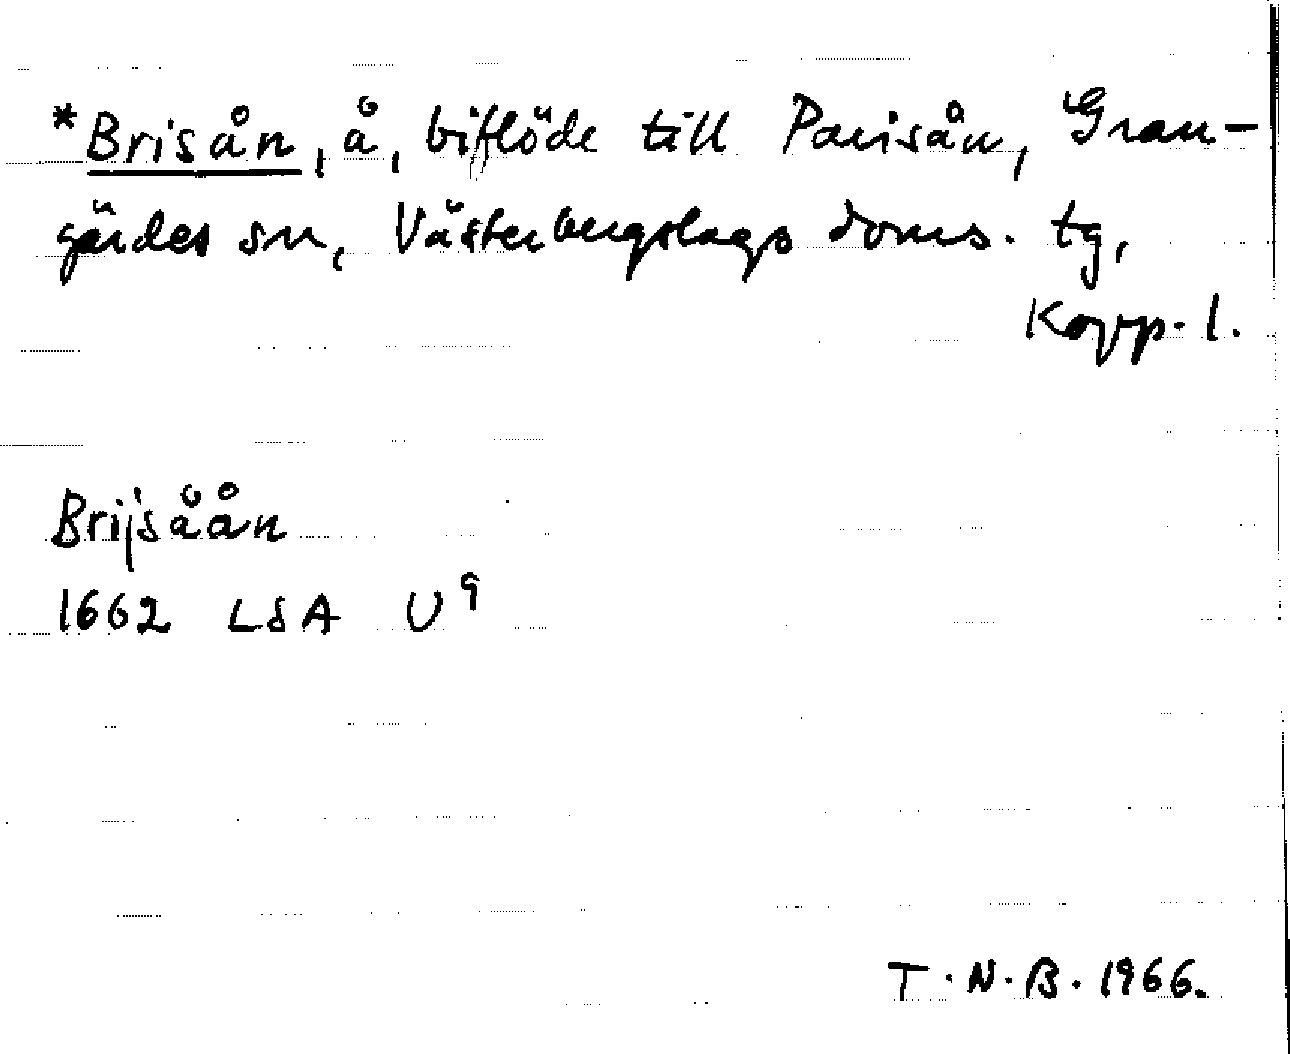 *Brisån, å, biflöde till Parisån, Gran-
gärdes sn, Västerbergslags doms. tg,
Kopp. l.
Brijsåån
1662 LSA U⁹
T.N.B. 1966.